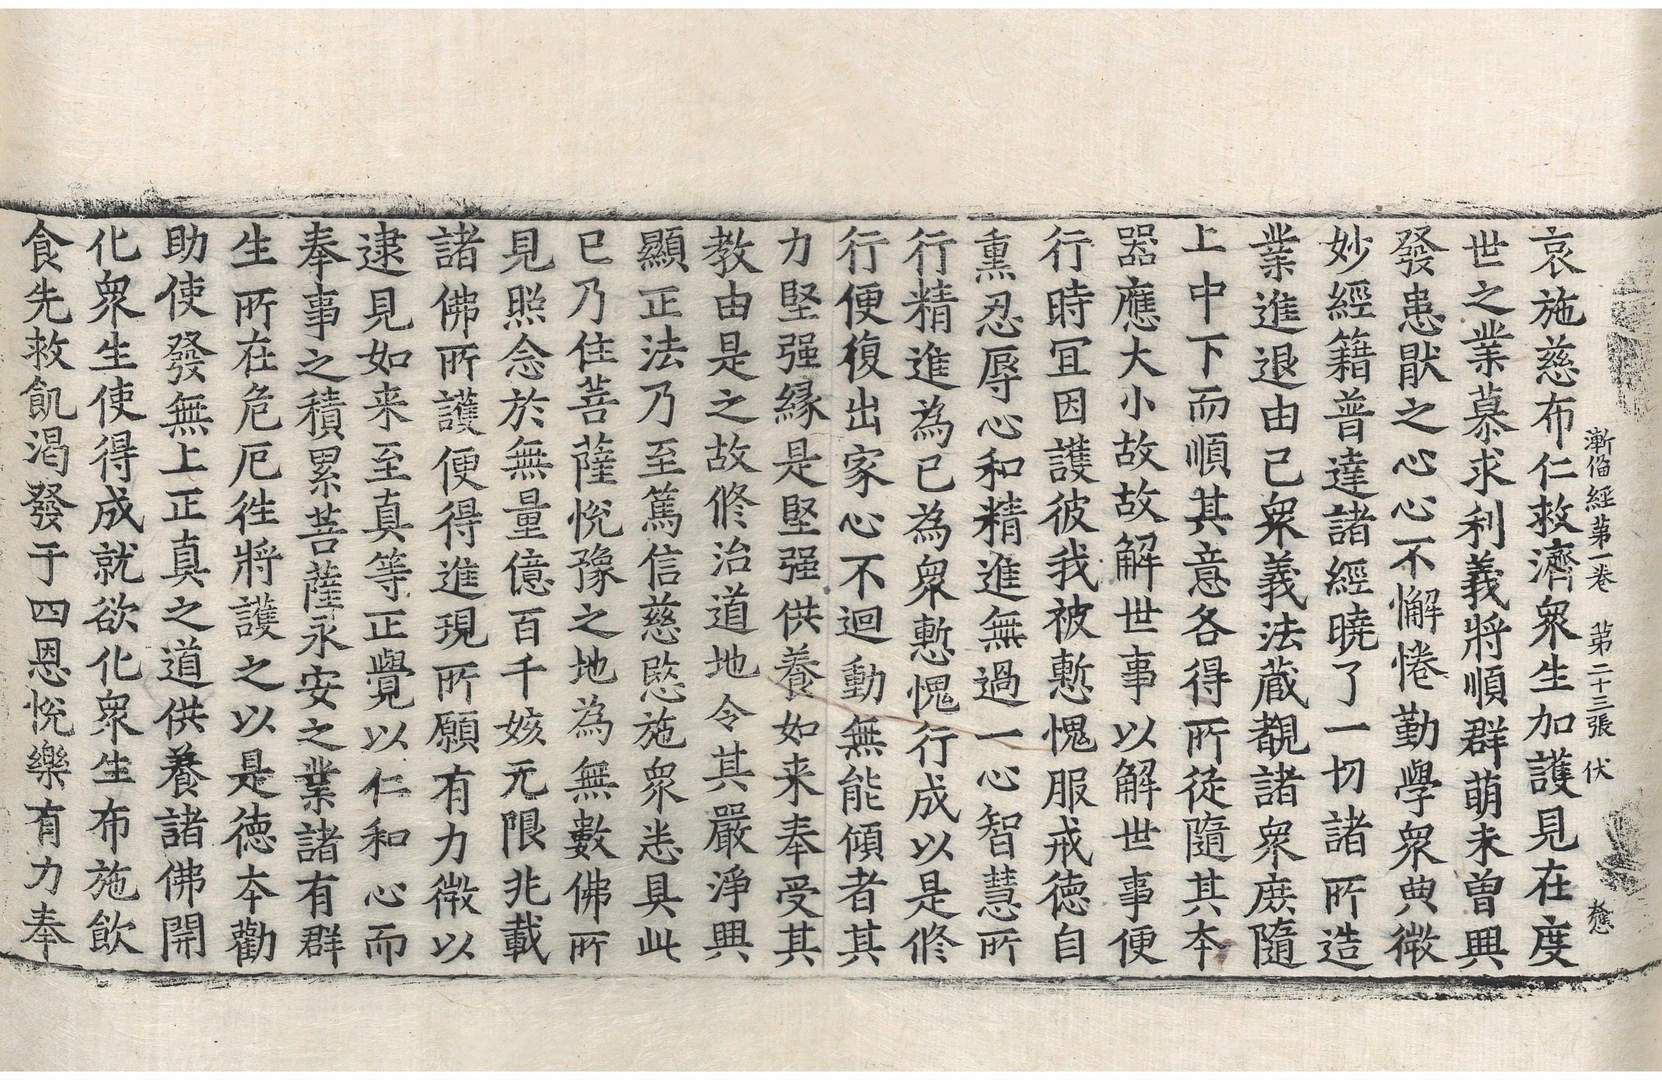 漸俻經第一卷 第二十三張 伏
哀施慈布仁救濟衆生加護見在度
世之業慕求利義將順群萌未曾興
發恚猒之心心不懈惓勤學衆典微
妙經籍普達諸經曉了一切諸所造
業進退由己衆義法藏覩諸衆庶隨
上中下而順其意各得所從隨其本
器應大小故故解世事以解世事便
行時冝因護彼我被慙愧服戒德自
熏忍辱心和精進無過一心智慧所
行精進為己為衆慙愧行成以是修
行便復出家心不迴動無能傾者其
力堅强緣是堅强供養如来奉受其
教由是之故修治道地令其嚴淨興
顯正法乃至篤信慈愍施衆恚具此
已乃住菩薩悅豫之地為無數佛所
見照念於無量億百千姟无限兆載
諸佛所護便得進現所願有力微以
逮見如来至真等正覺以仁和心而
奉事之積累菩薩永安之業諸有群
生所在危厄徃將護之以是德本勸
助使發無上正真之道供養諸佛開
化衆生使得成就欲化衆生布施飲
食先救飢渴發于四恩悅樂有力奉